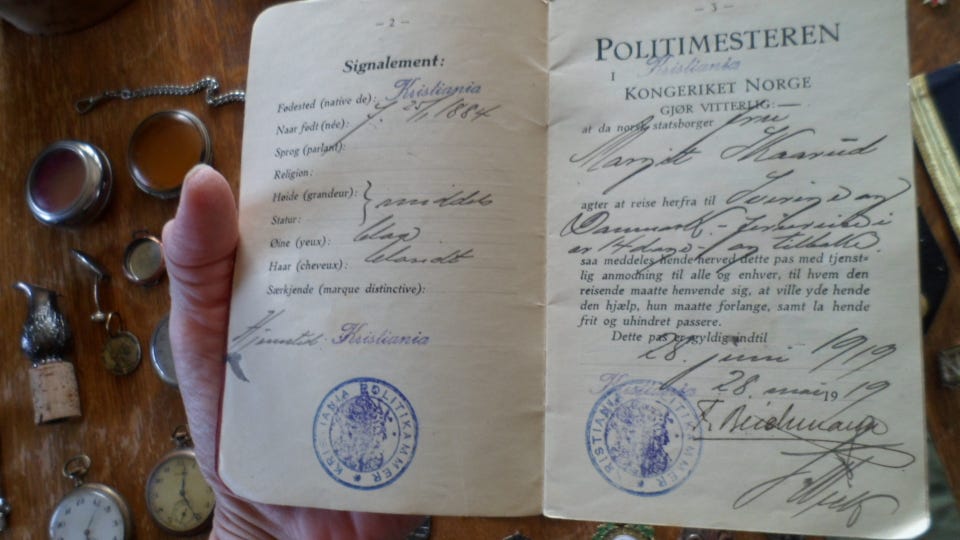 — 2 —
Signalement:
Fødested (native de): Kristiania
Naar født (née): f. 25/1 1884
Sprog (parlant):
Religion:
Høide (grandeur): } middels
Statur:
Øine (yeux): blaa
Haar (cheveux): blondt
Særkjende (marque distinctive):
Hjemsted: Kristiania
KRISTIANIA POLITIKAMMER
— 3 —
POLITIMESTEREN
I Kristiania
KONGERIKET NORGE
GJØR VITTERLIG:
at da norsk statsborger fru
Margit Skaarud
agter at reise herfra til Sverige og
Danmark
14 dage og tilbake
saa meddeles hende herved dette pas med tjenst-
lig anmodning til alle og enhver, til hvem den
reisende maatte henvende sig, at ville yde hende
den hjælp, hun maatte forlange, samt la hende
frit og uhindret passere.
Dette pas er gyldig indtil
28. juni 1919
Kristiania 28. mai 1919
KRISTIANIA POLITIKAMMER